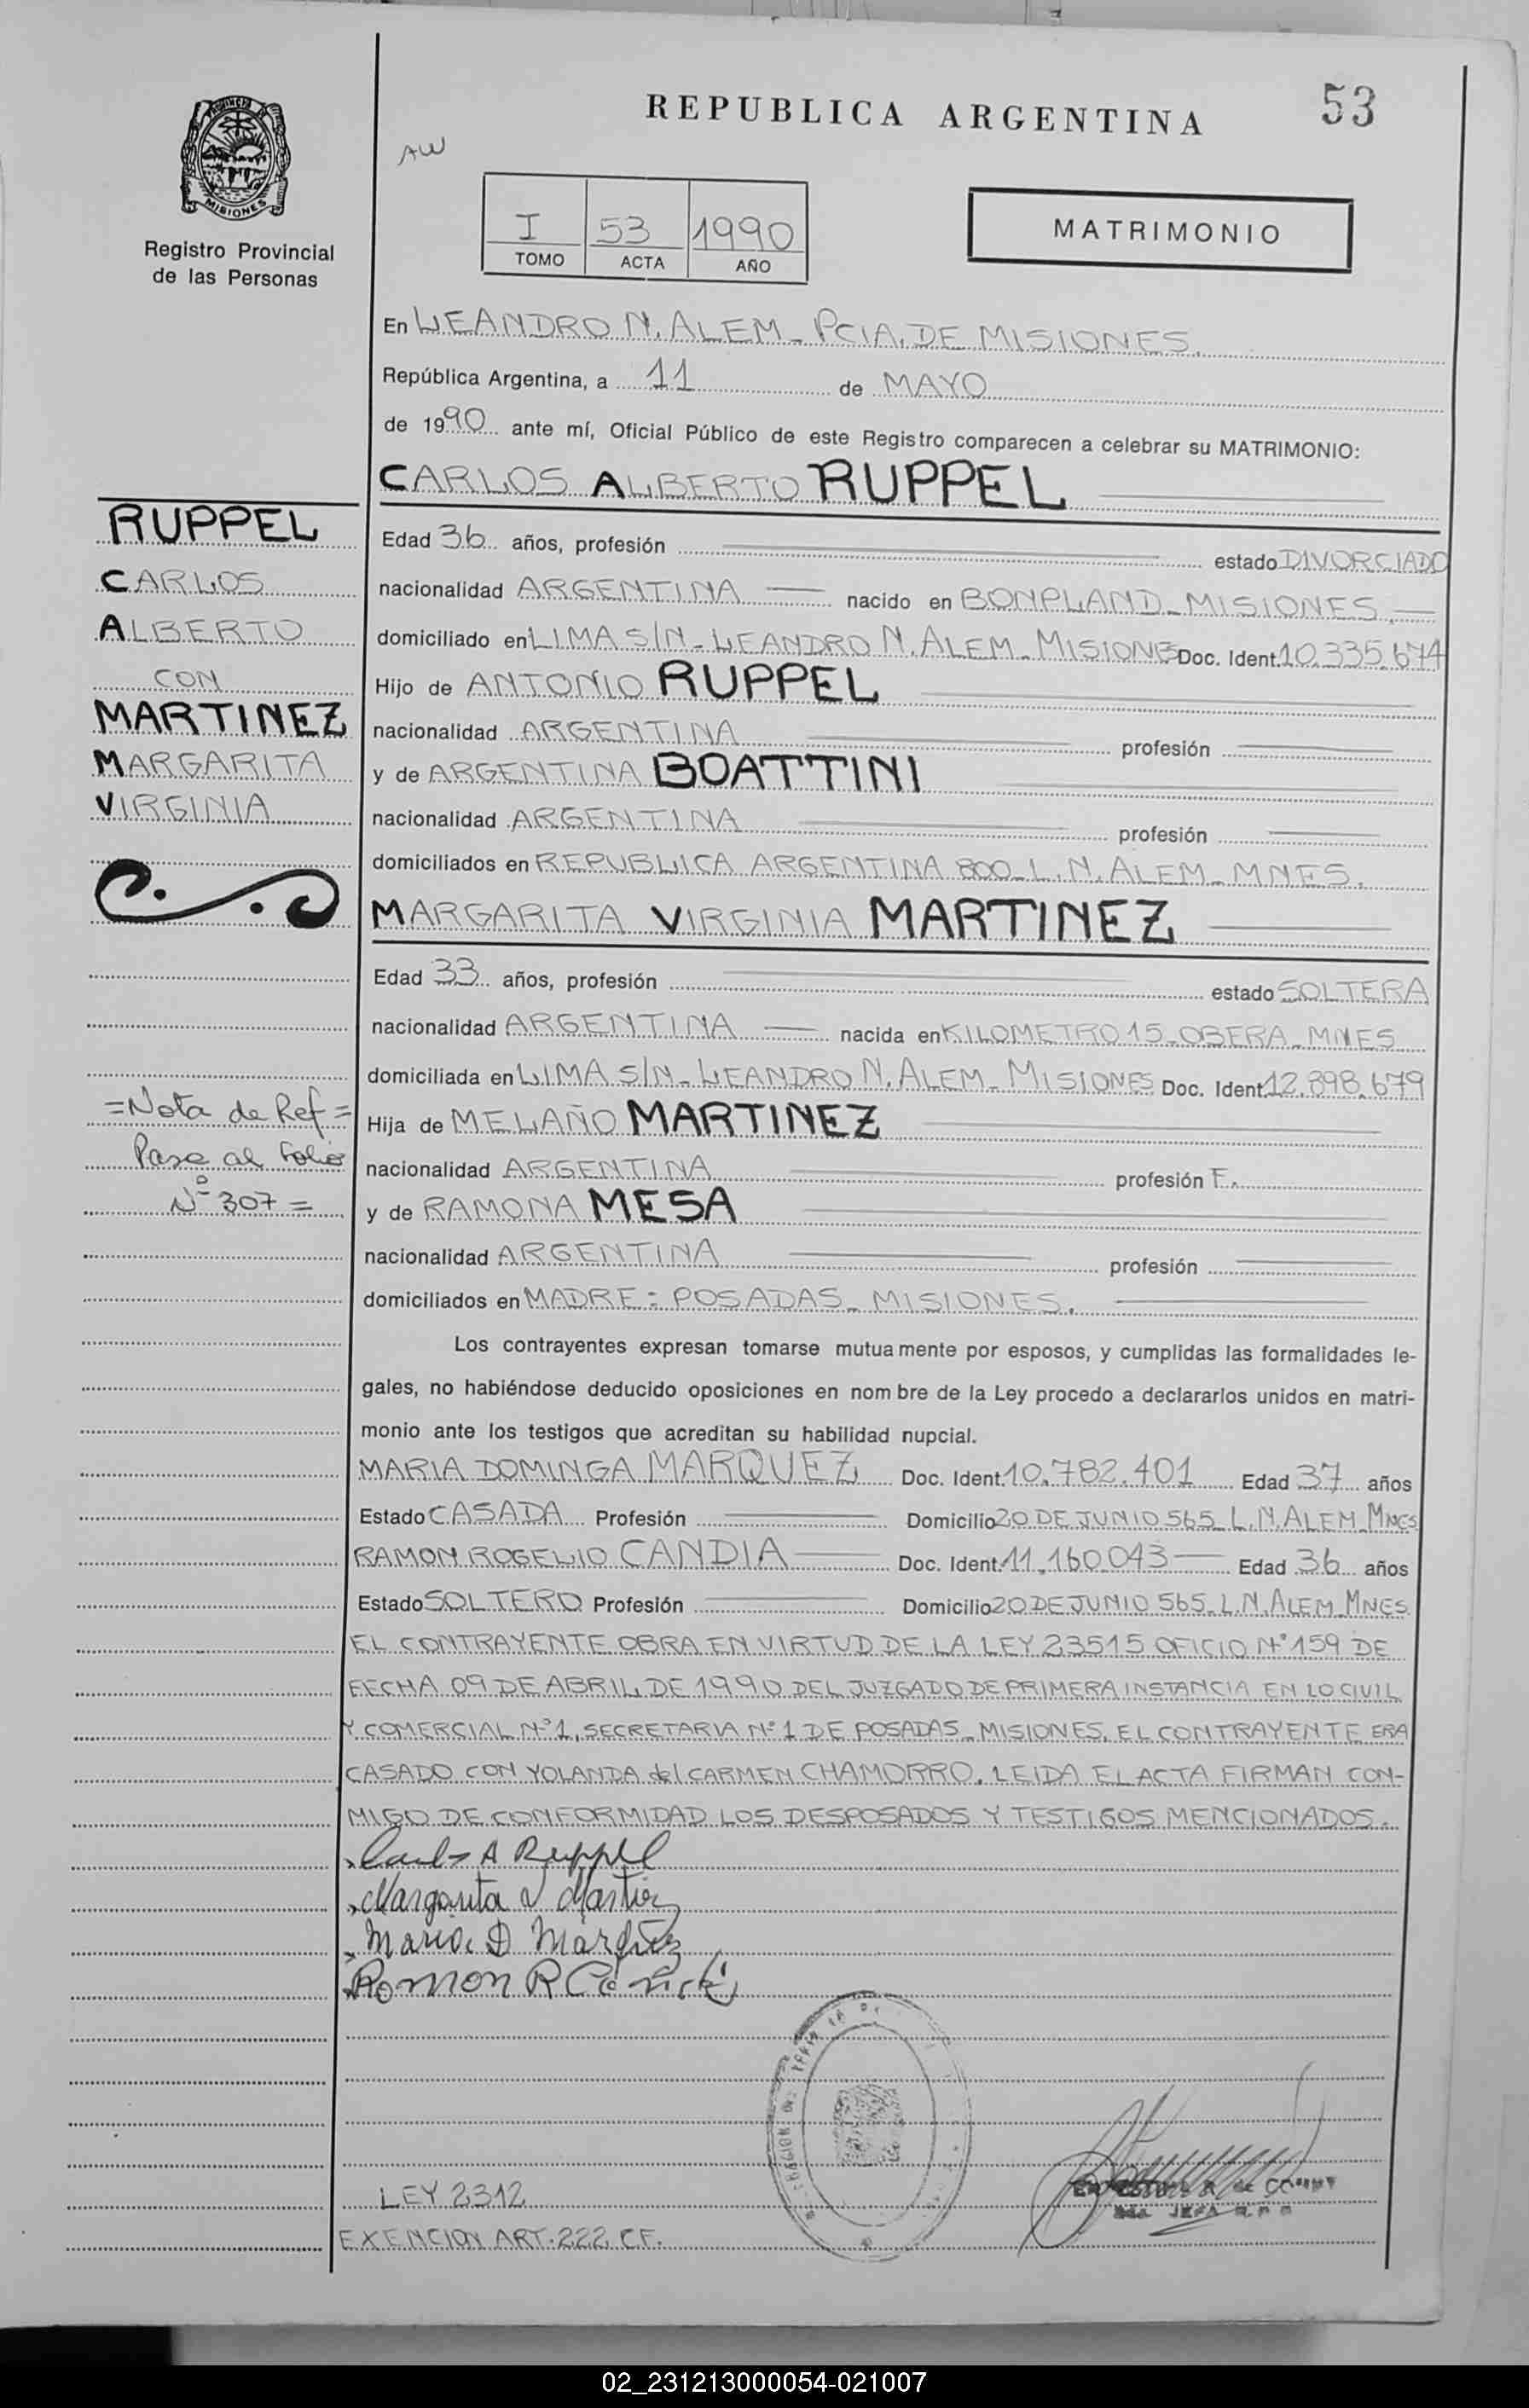 REPUBLICA ARGENTINA
53
AW
MISIONES
Registro Provincial
de las Personas
I 53 1990
TOMO ACTA AÑO
MATRIMONIO
En LEANDRO N. ALEM - PCIA. DE MISIONES.
República Argentina, a 11 de MAYO
de 1990 ante mí, Oficial Público de este Registro comparecen a celebrar su MATRIMONIO:
CARLOS ALBERTO RUPPEL
RUPPEL
CARLOS
ALBERTO
CON
MARTINEZ
MARGARITA
VIRGINIA
Edad 36 años, profesión estado DIVORCIADO
nacionalidad ARGENTINA nacido en BONPLAND - MISIONES.
domiciliado en LIMA S/N - LEANDRO N. ALEM - MISIONES Doc. Ident. 10.335.674
Hijo de ANTONIO RUPPEL
nacionalidad ARGENTINA profesión
y de ARGENTINA BOATTINI
nacionalidad ARGENTINA profesión
domiciliados en REPUBLICA ARGENTINA 800 - L. N. ALEM - MNES.
MARGARITA VIRGINIA MARTINEZ
Edad 33 años, profesión estado SOLTERA
nacionalidad ARGENTINA nacida en KILOMETRO 15 - OBERA - MNES
domiciliada en LIMA S/N - LEANDRO N. ALEM - MISIONES Doc. Ident. 12.898.679
Hija de MELAÑO MARTINEZ
nacionalidad ARGENTINA profesión F.
y de RAMONA MESA
nacionalidad ARGENTINA profesión
domiciliados en MADRE: POSADAS - MISIONES.
= Nota de Ref =
Pase al Folio
Nº 307 =
Los contrayentes expresan tomarse mutuamente por esposos, y cumplidas las formalidades le-
gales, no habiéndose deducido oposiciones en nombre de la Ley procedo a declararlos unidos en matri-
monio ante los testigos que acreditan su habilidad nupcial.
MARIA DOMINGA MARQUEZ Doc. Ident. 10.782.401 Edad 37 años
Estado CASADA Profesión Domicilio 20 DE JUNIO 565 - L. N. ALEM - MNES
RAMON ROGELIO CANDIA Doc. Ident. 11.160.043 Edad 36 años
Estado SOLTERO Profesión Domicilio 20 DE JUNIO 565 - L. N. ALEM - MNES.
EL CONTRAYENTE OBRA EN VIRTUD DE LA LEY 23515 OFICIO Nº 159 DE
FECHA 09 DE ABRIL DE 1990 DEL JUZGADO DE PRIMERA INSTANCIA EN LO CIVIL
Y COMERCIAL Nº 1, SECRETARIA Nº 1 DE POSADAS - MISIONES. EL CONTRAYENTE ERA
CASADO CON YOLANDA del CARMEN CHAMORRO. LEIDA EL ACTA FIRMAN CON-
MIGO DE CONFORMIDAD LOS DESPOSADOS Y TESTIGOS MENCIONADOS.
Carlos A Ruppel
Margarita V Martinez
Maria D Marquez
Ramon R Candia
LEY 2312
EXENCION ART. 222 C.F.
02_231213000054-021007